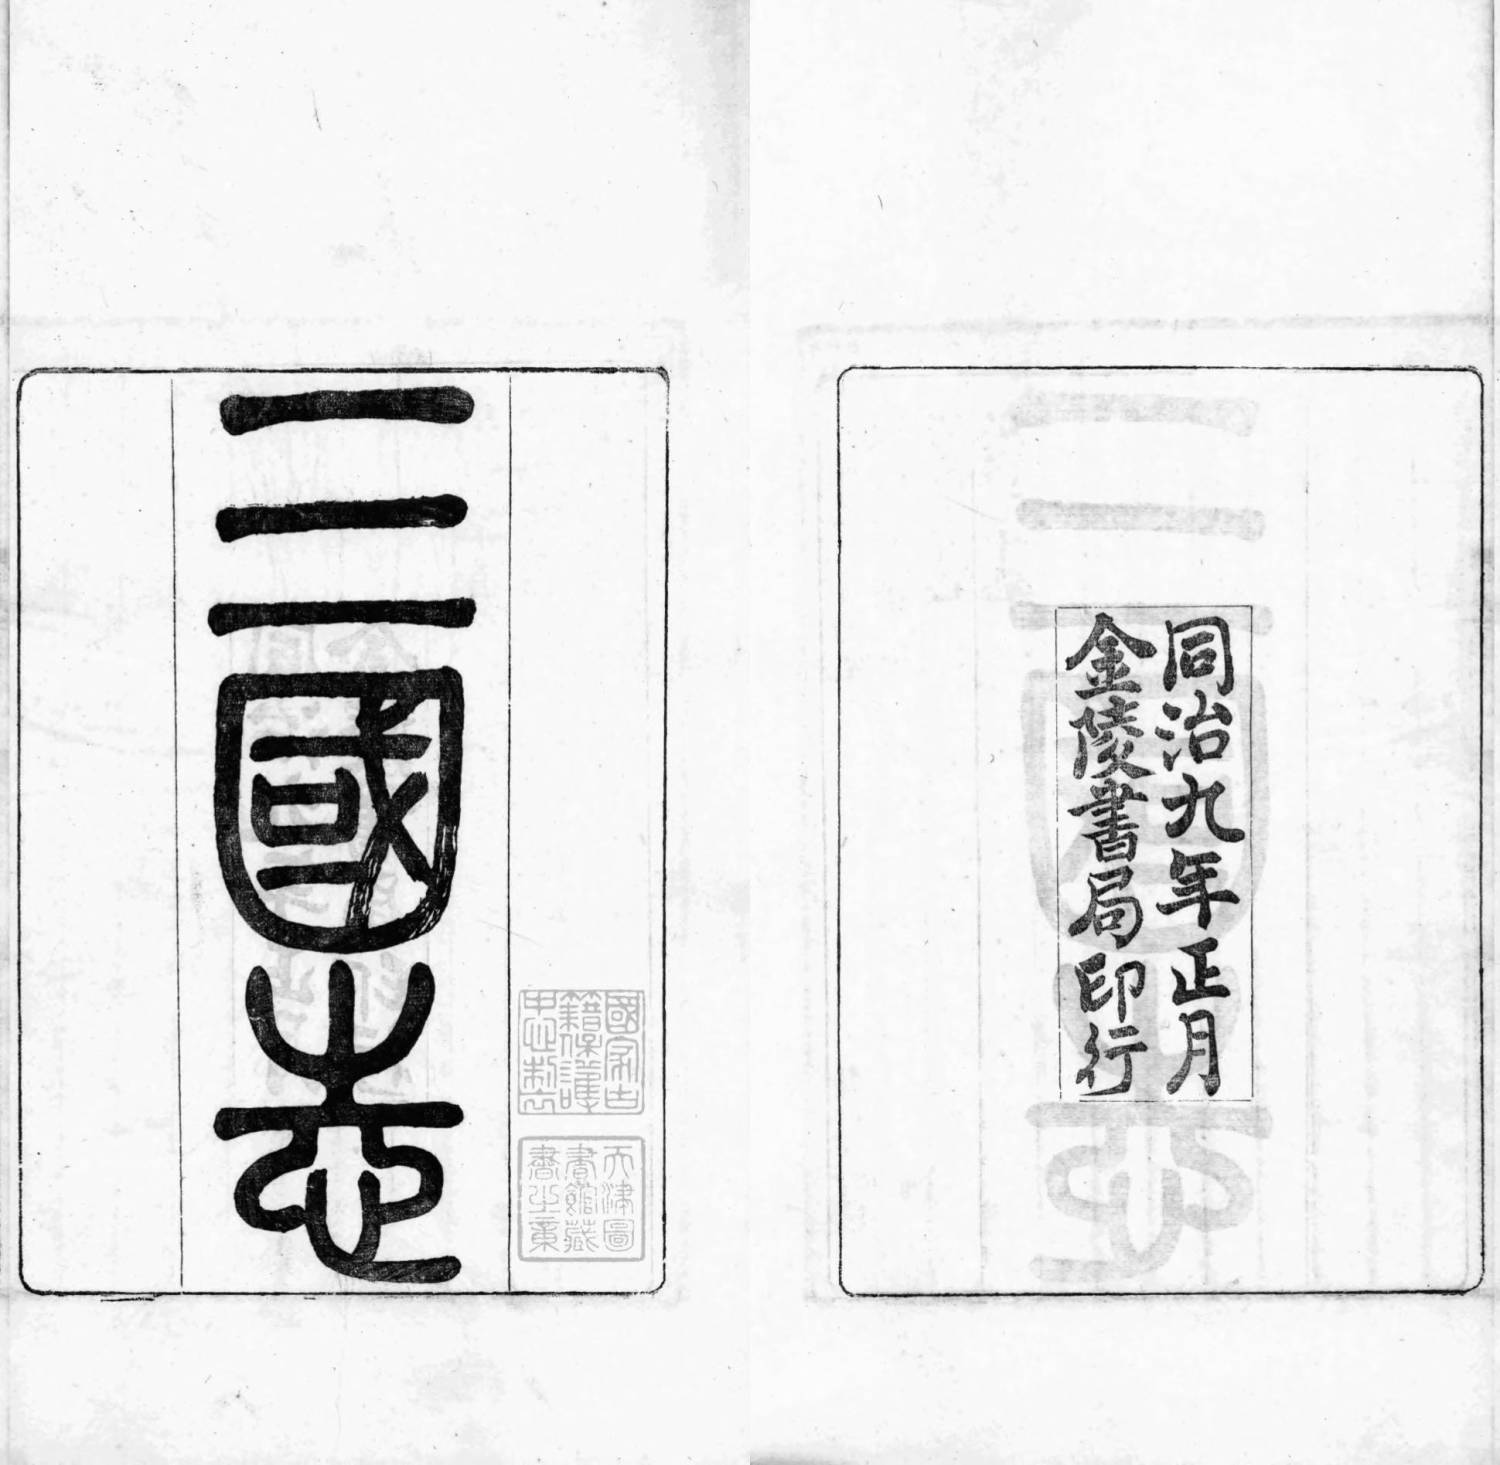 三國志
國家古
籍保護
中心製
天津圖
書館藏
書之章
同治九年正月
金陵書局印行